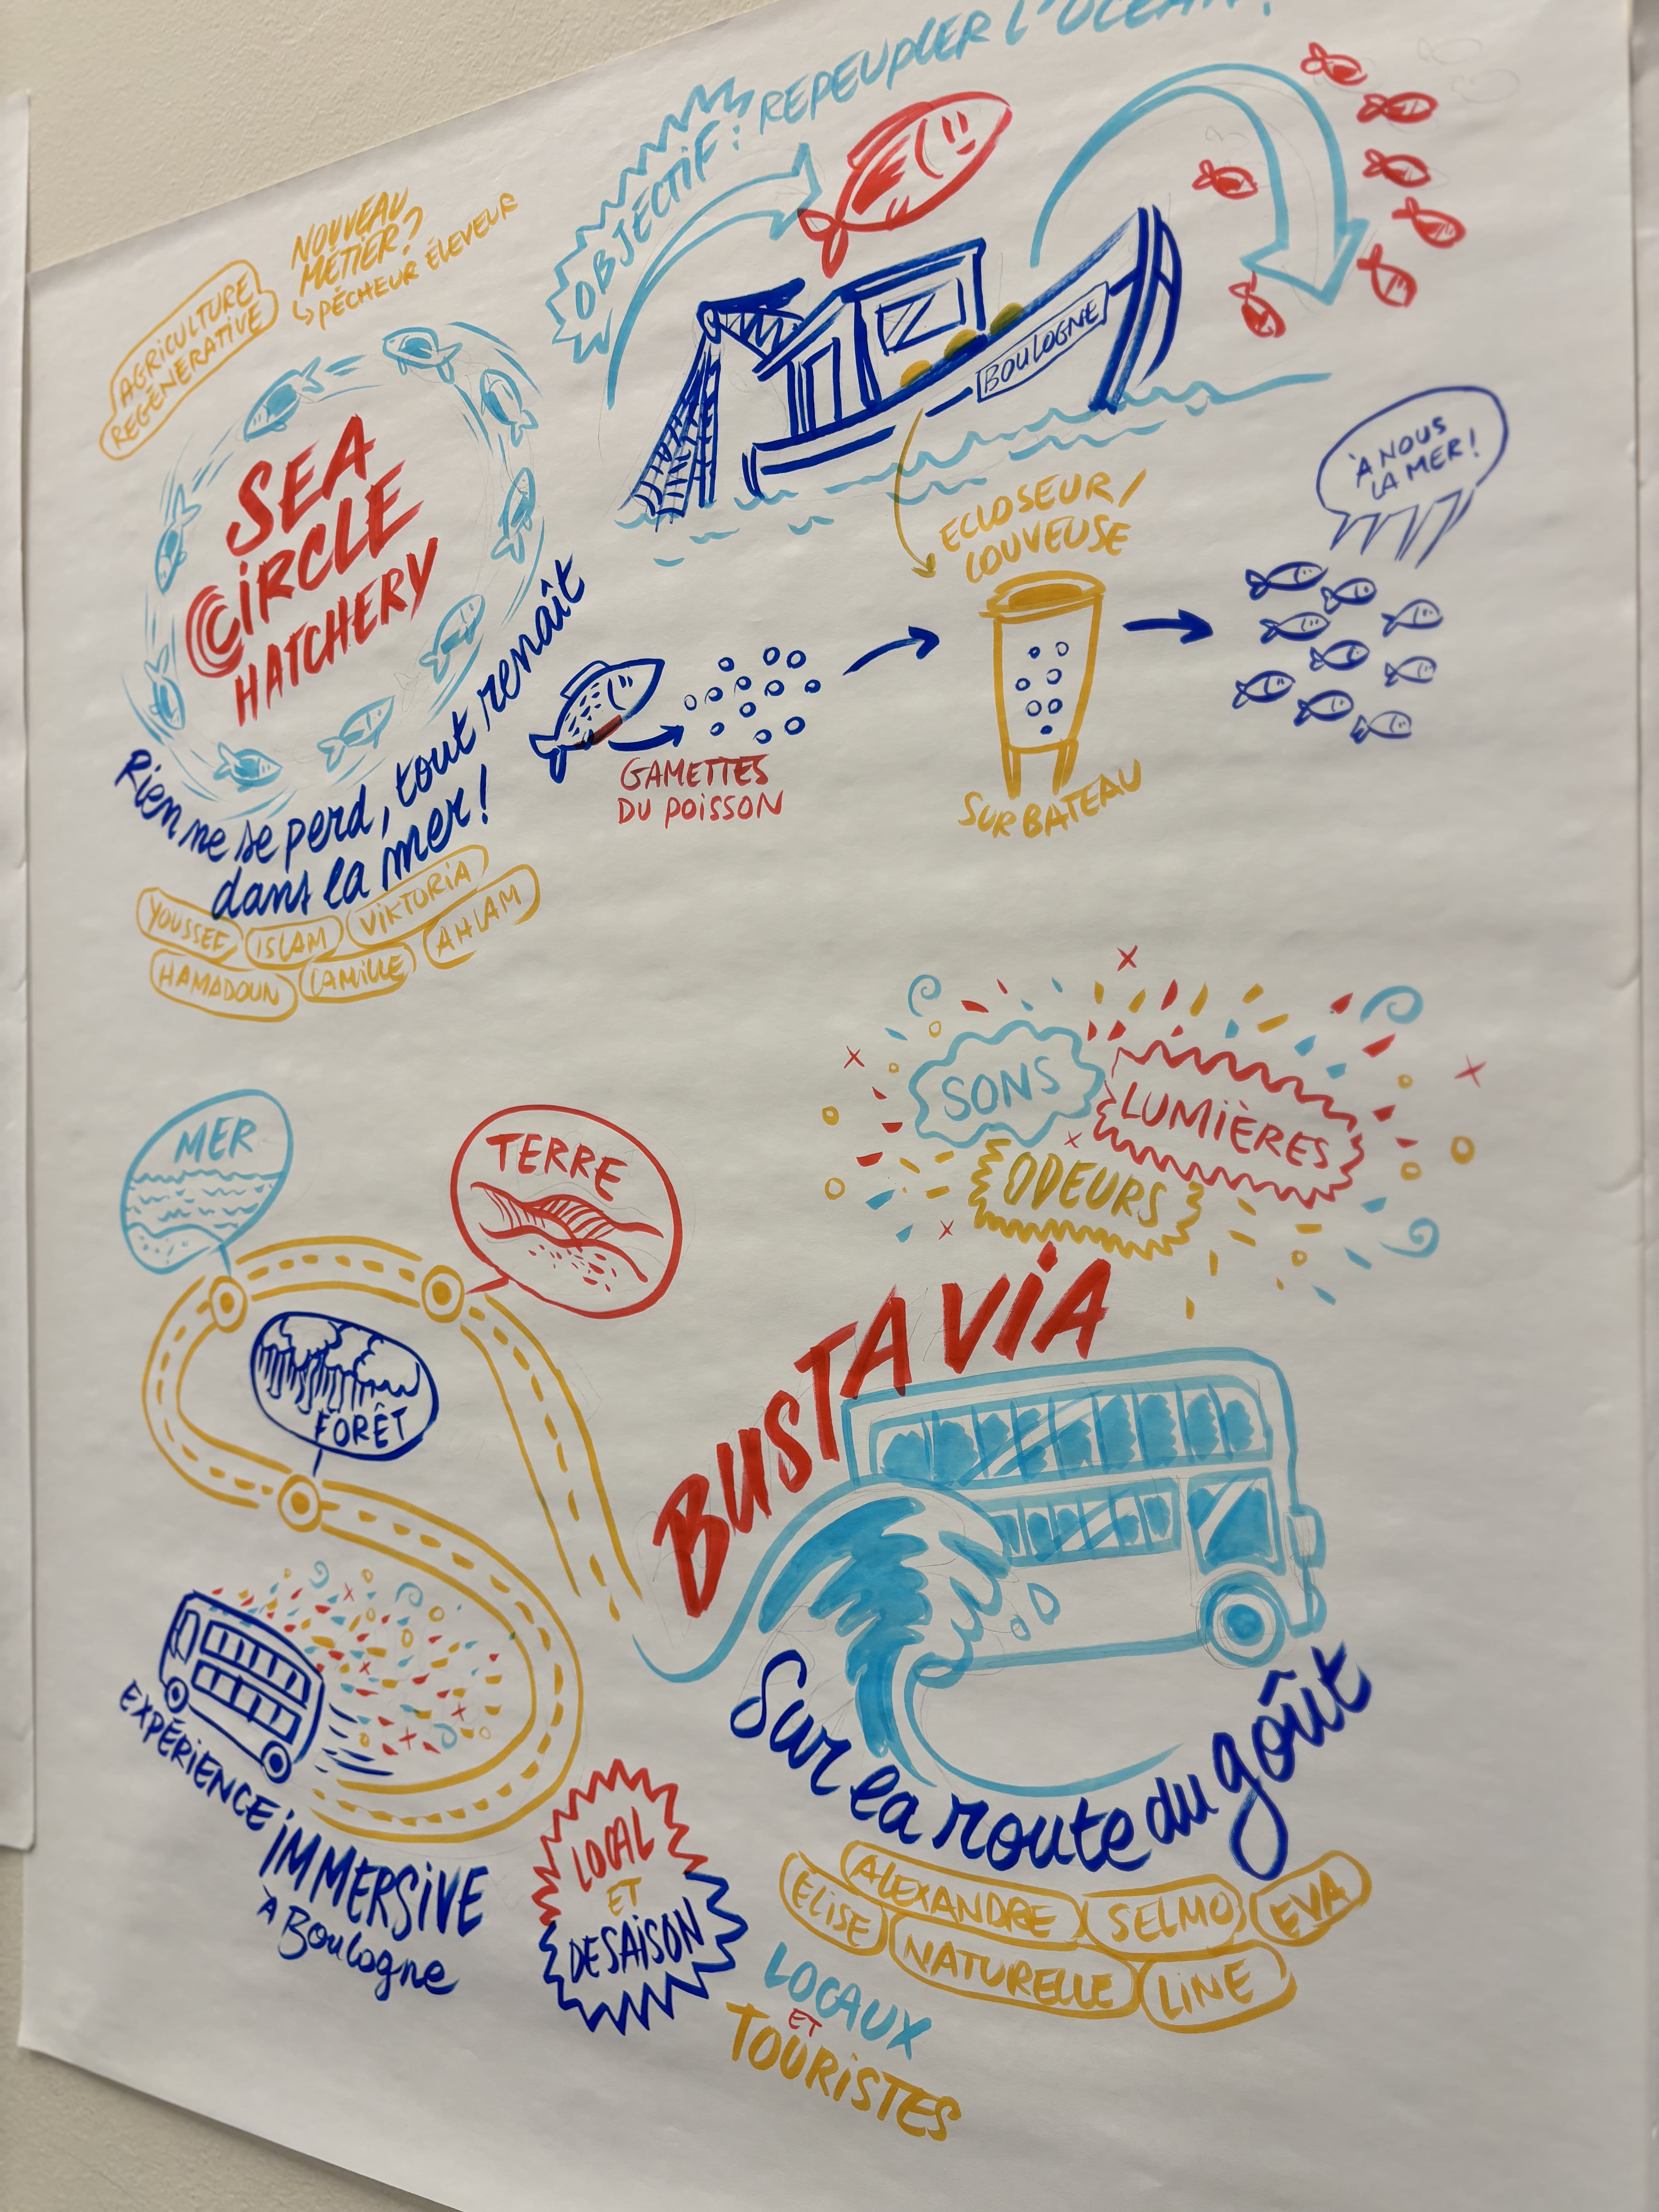 OBJECTIF : REPEUPLER L'OCÉAN !
AGRICULTURE
REGÉNERATIVE
NOUVEAU
MÉTIER ?
↳ PÊCHEUR ÉLEVEUR
SEA
CIRCLE
HATCHERY
Rien ne se perd, tout renaît
dans la mer !
YOUSSEF
ISLAM
VIKTORIA
AHLAM
HAMADOUN
CAMILLE
BOULOGNE
GAMETTES
DU POISSON
ECLOSEUR/
COUVEUSE
SUR BATEAU
À NOUS
LA MER !
MER
TERRE
FORÊT
EXPÉRIENCE
IMMERSIVE
À Boulogne
SONS
LUMIÈRES
ODEURS
BUSTAVIA
Sur la route du goût
LOCAL
ET
DE SAISON
ALEXANDRE
SELMO
EVA
ÉLISE
NATURELLE
LINE
LOCAUX
ET
TOURISTES